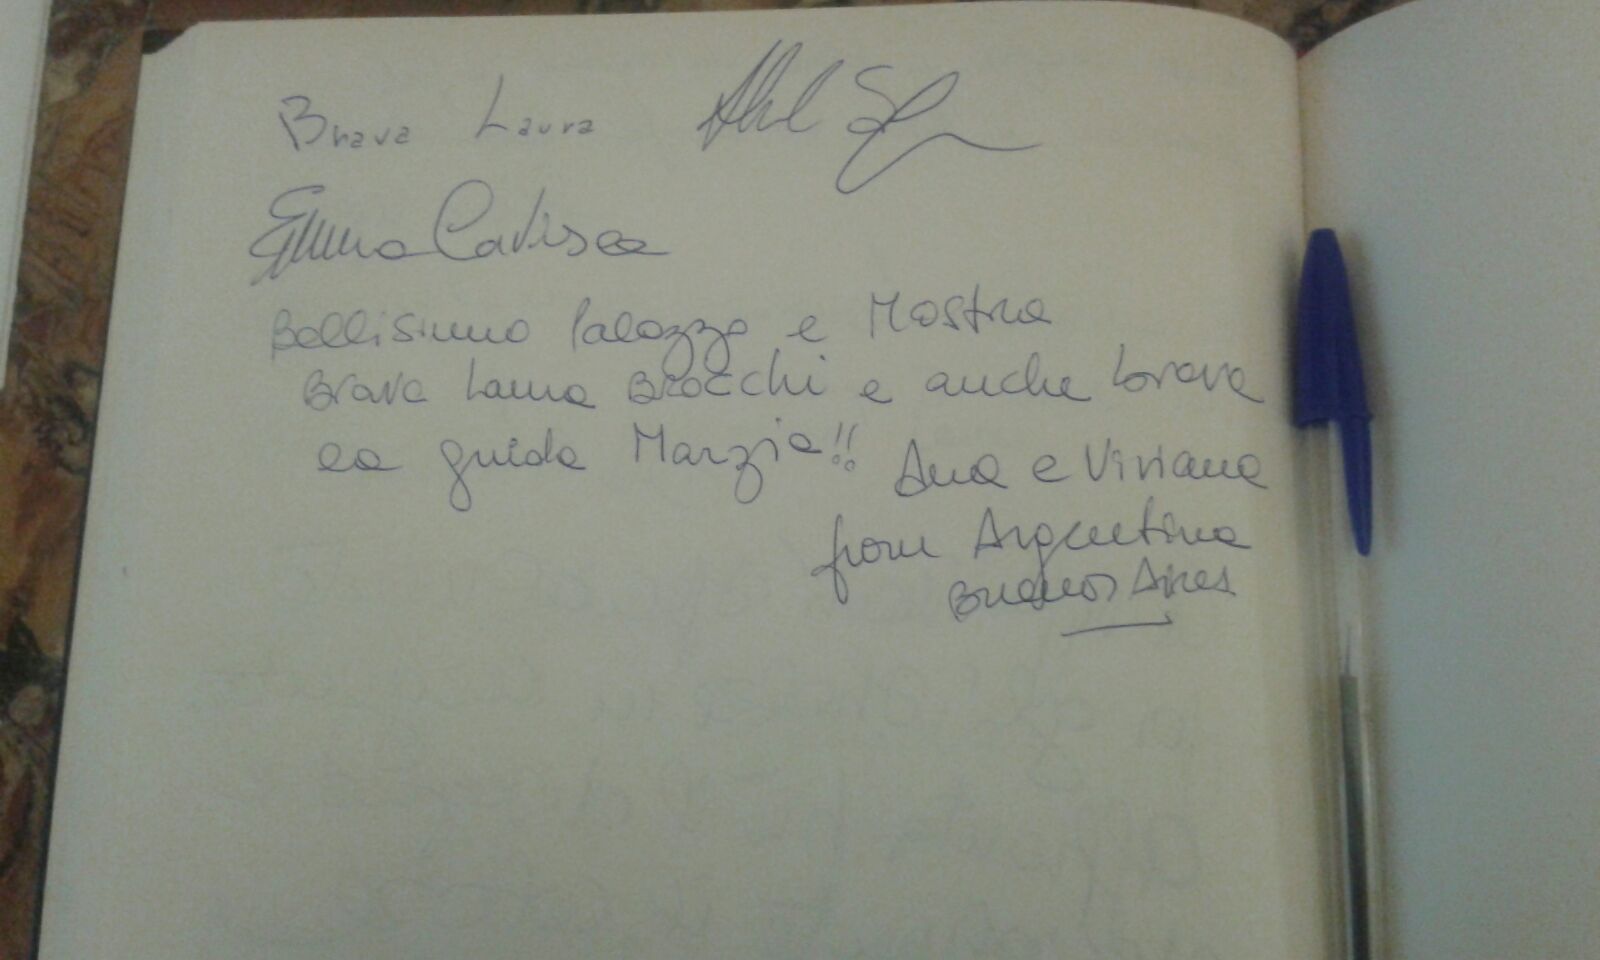 Brava Laura
Bellisimo Palazzo e Mostra
Brava Laura Brocchi e anche brava
la guida Marzia!!
Ana e Viviana
from Argentina
Buenos Aires